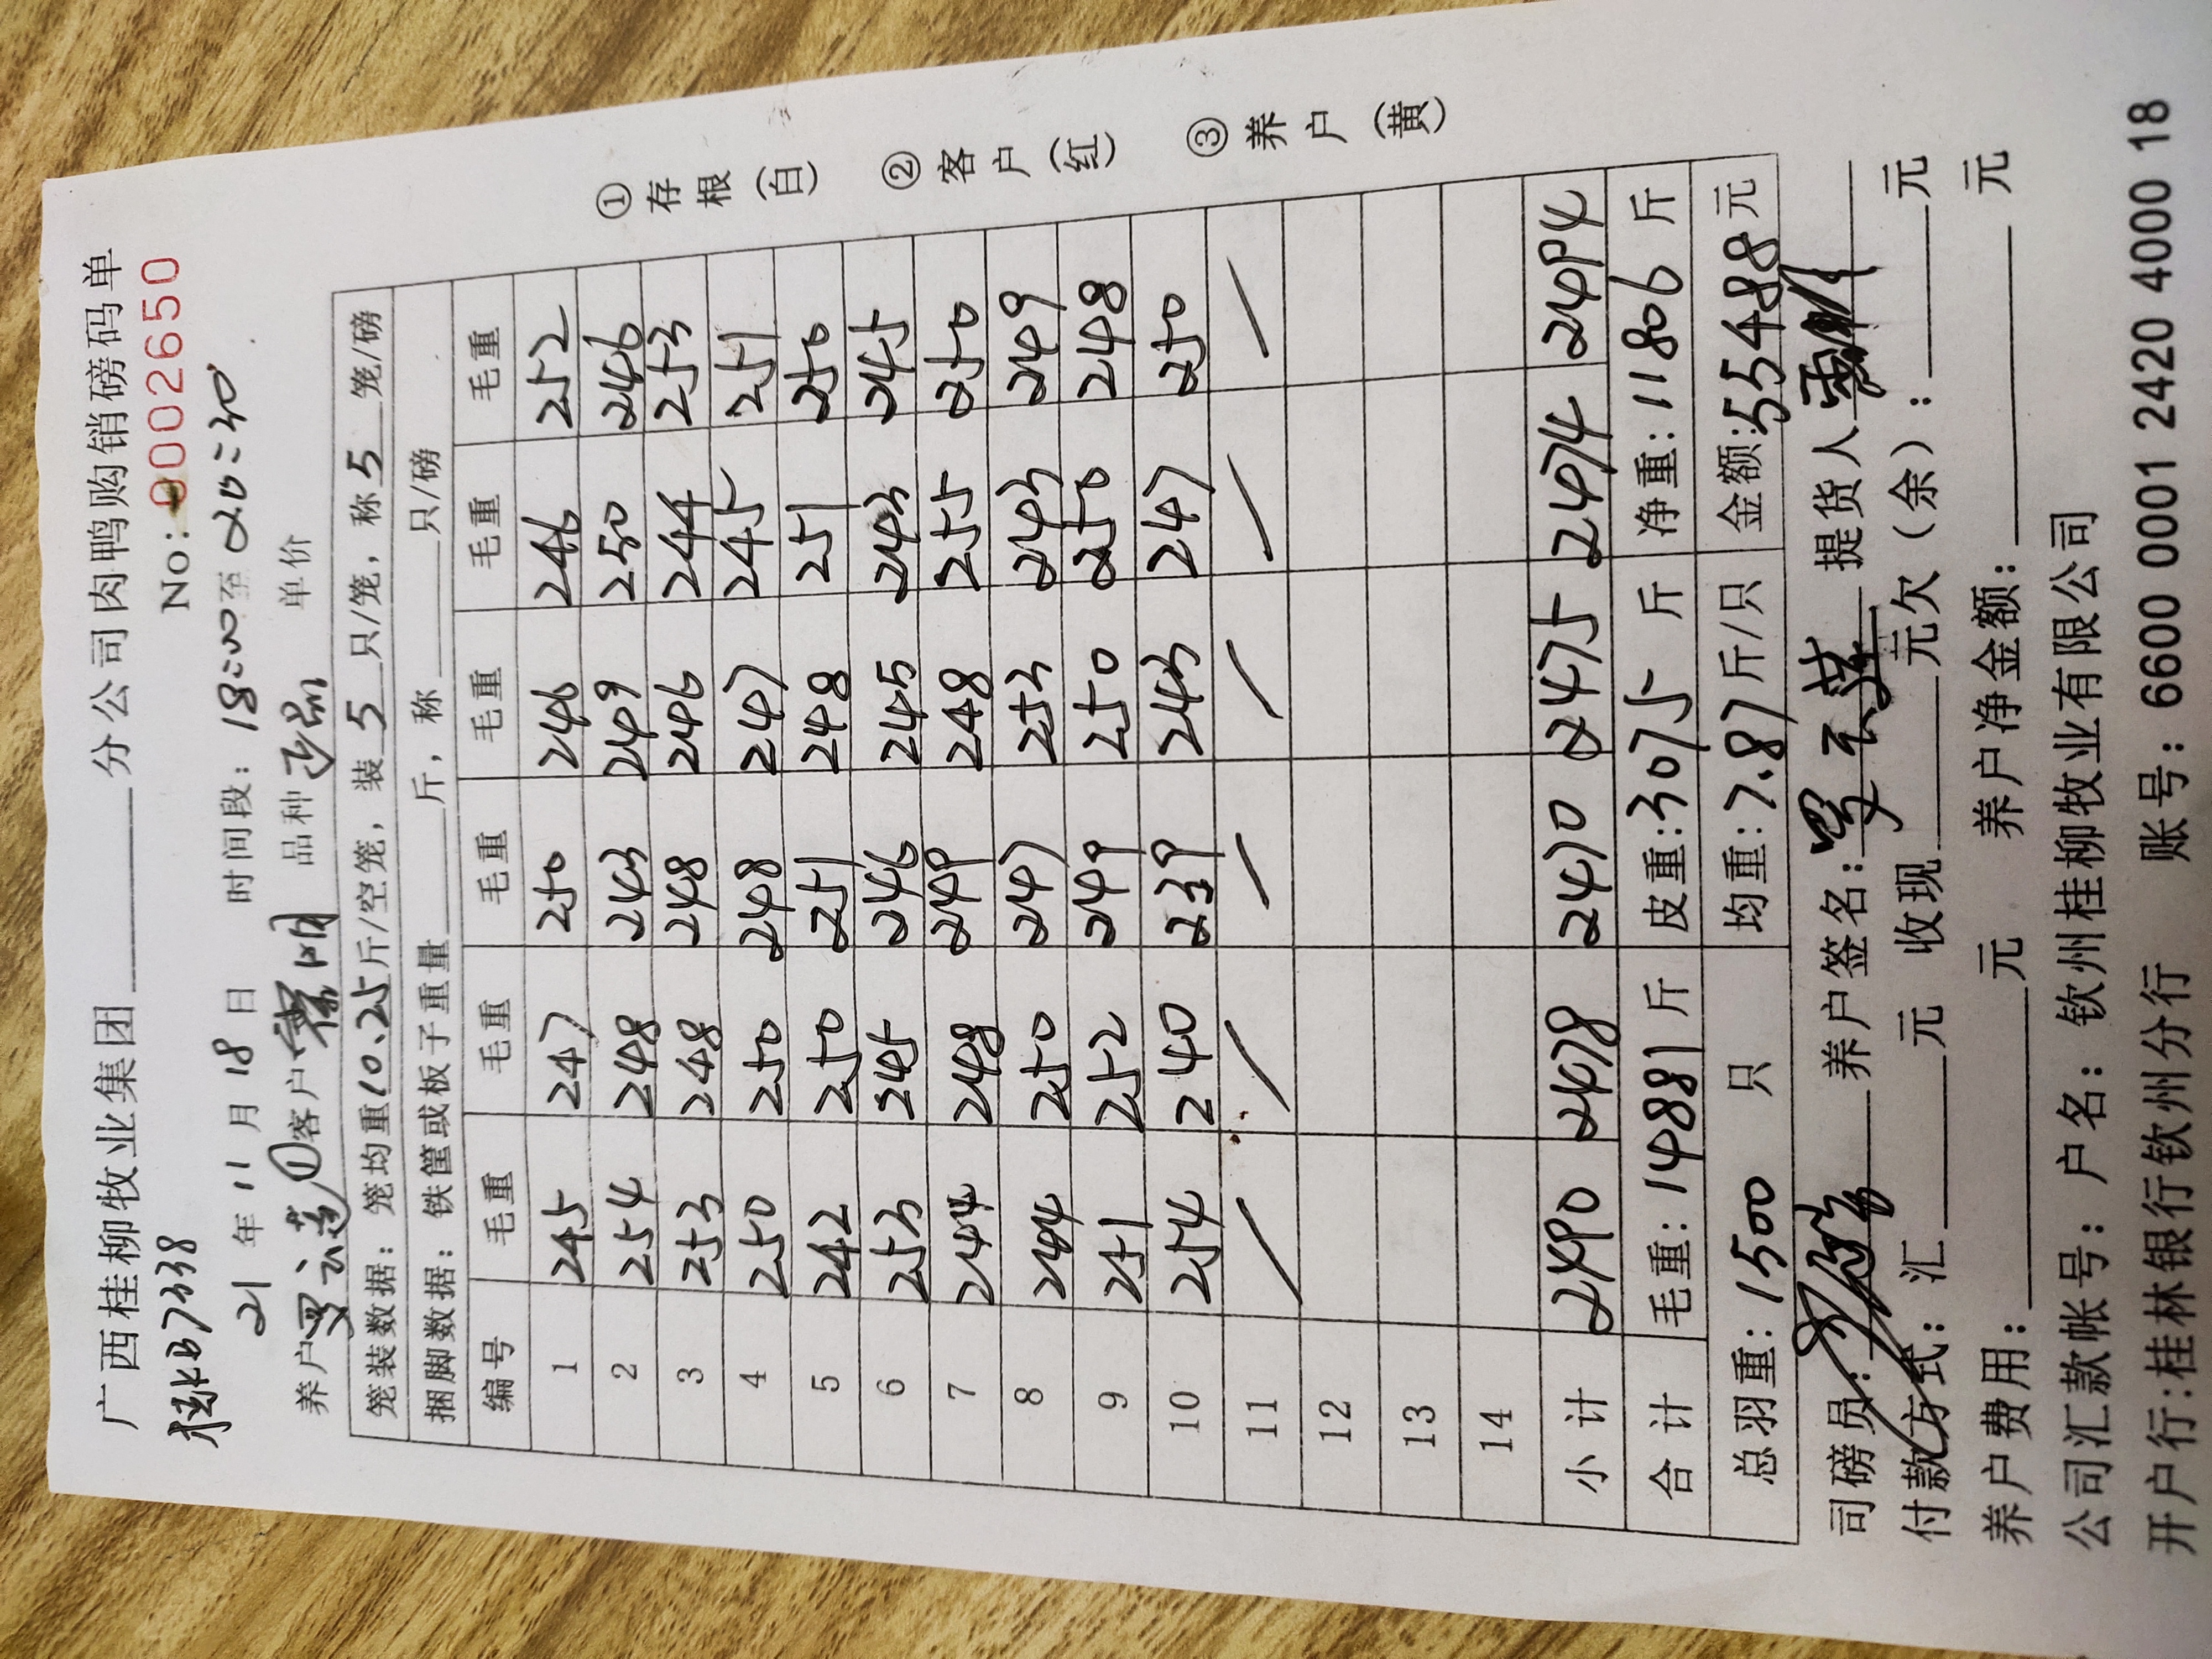 广西桂柳牧业集团 分公司肉鸭购销磅码单
桂B7338 No:0002650
21年11月18日 时间段:18:00至20:30
养户 ① 客户 品种 正品 单价
笼装数据:笼均重10.25斤/空笼,装5只/笼,称5笼/磅
捆脚数据:铁筐或板子重量 斤,称 只/磅
编号 毛重 毛重 毛重 毛重 毛重 毛重
1 245 247 250 246 246 252
2 254 248 243 249 250 246
3 253 248 248 246 244 253
4 250 250 248 247 245 251
5 242 250 251 248 251 250
6 253 245 246 245 243 245
7 244 248 249 248 255 250
8 244 250 247 253 243 249
9 251 252 249 250 250 248
10 254 240 239 243 247 250
11 / / / / / /
12
13
14
小计 2490 2478 2470 2475 2474 2494
合计 毛重:14881斤 皮重:3075斤 净重:11806斤
总羽重:1500 只 均重:7.87斤/只 金额:55488元
司磅员: 养户签名: 提货人
付款方式:汇 元 收现 元欠(余): 元
养户费用: 元 养户净金额: 元
公司汇款帐号:户名:钦州桂柳牧业有限公司
开户行:桂林银行钦州分行 账号:6600 0001 2420 4000 18
①存根(白) ②客户(红) ③养户(黄)